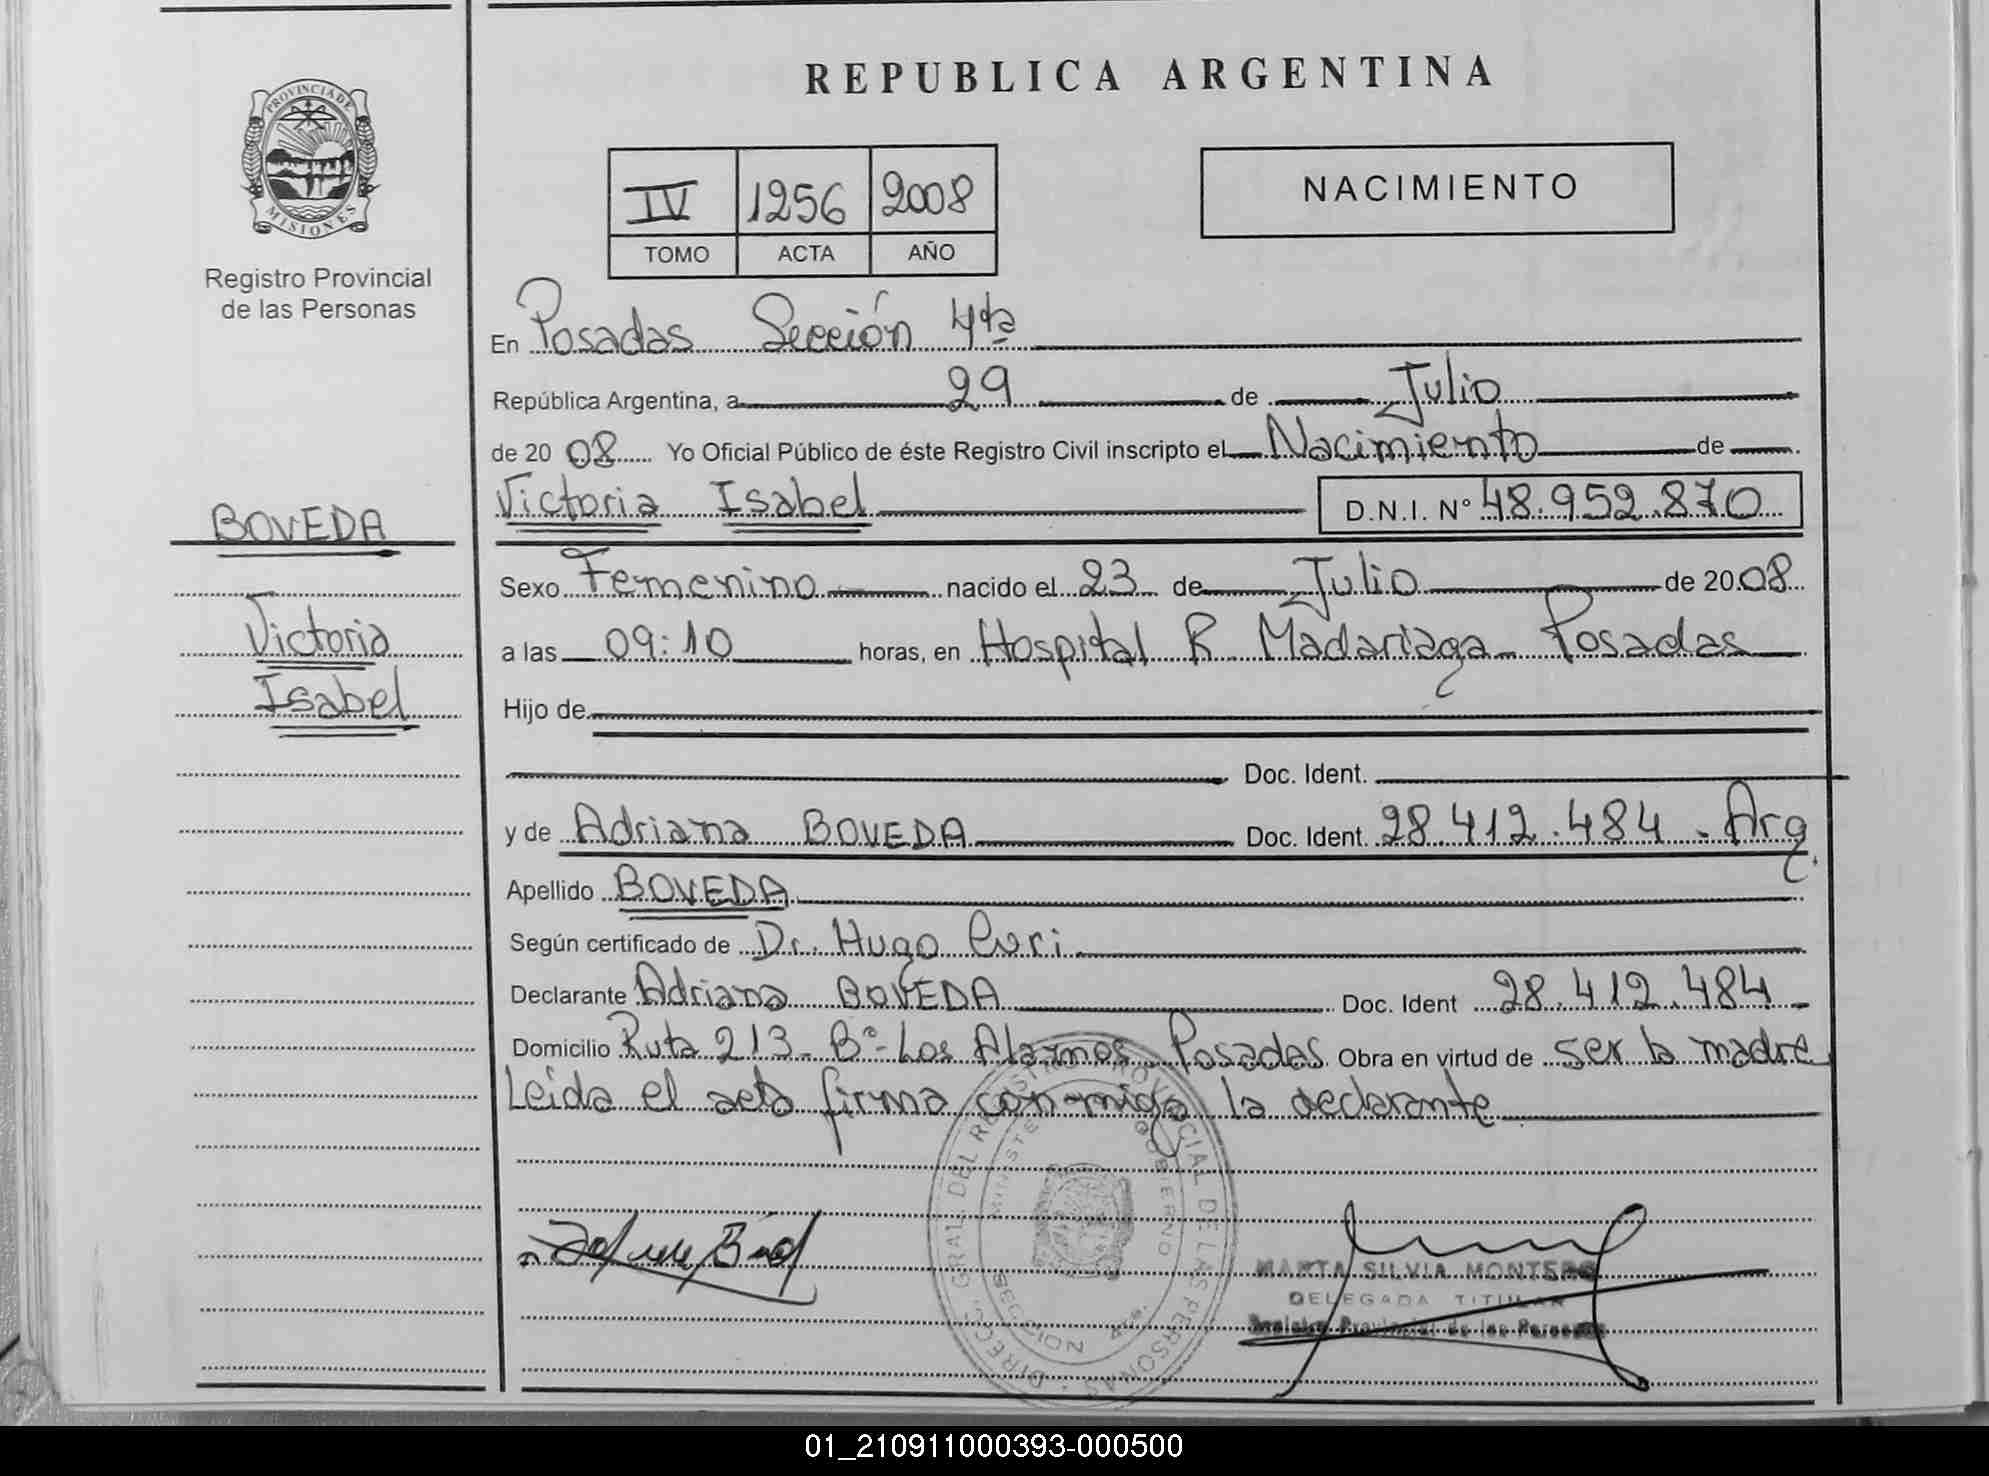 REPUBLICA ARGENTINA
PROVINCIA DE
MISIONES
Registro Provincial
de las Personas
IV 1256 2008
TOMO ACTA AÑO
NACIMIENTO
En Posadas Sección 4ta
República Argentina, a 29 de Julio
de 20 08 Yo Oficial Público de éste Registro Civil inscripto el Nacimiento de
Victoria Isabel D.N.I. N° 48.952.870
BOVEDA
Victoria
Isabel
Sexo Femenino nacido el 23 de Julio de 20 08
a las 09:10 horas, en Hospital R Madariaga - Posadas
Hijo de
Doc. Ident.
y de Adriana BOVEDA Doc. Ident. 28.412.484 - Arg.
Apellido BOVEDA
Según certificado de Dr. Hugo
Declarante Adriana BOVEDA Doc. Ident 28.412.484 -
Domicilio Ruta 213 - B°- Los Alamos Posadas Obra en virtud de ser la madre
Leida el acta firma conmigo la declarante
DIREC. GRAL. DEL REGISTRO PROVINCIAL DE LAS PERSONAS
GOBIERNO
MARTA SILVIA MONTERO
DELEGADA TITULAR
Registro Provincial de las Personas
01_210911000393-000500